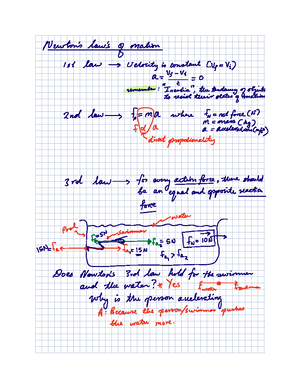 Newton's laws of motion
1st law → Velocity is constant (Vf = Vi)
a = Vf - Vi / t = 0
remember: "Inertia", the tendency of objects
to resist their states of motion
2nd law → fN = ma where fN = net force (N)
m = mass (kg)
fN α a a = acceleration (m/s²)
direct proportionality
3rd law → for every action force, there should
be an equal and opposite reaction
force
water
Pool
swimmer
f = 5N
fA2 = 5N
fN = 10N
15N = fR1
fA1 = 15N
fA1 > fA2
Does Newton's 3rd law hold for the swimmer
and the water? * Yes
fwater fswimmer
Why is the person accelerating
A: Because the person/swimmer pushes
the water more.